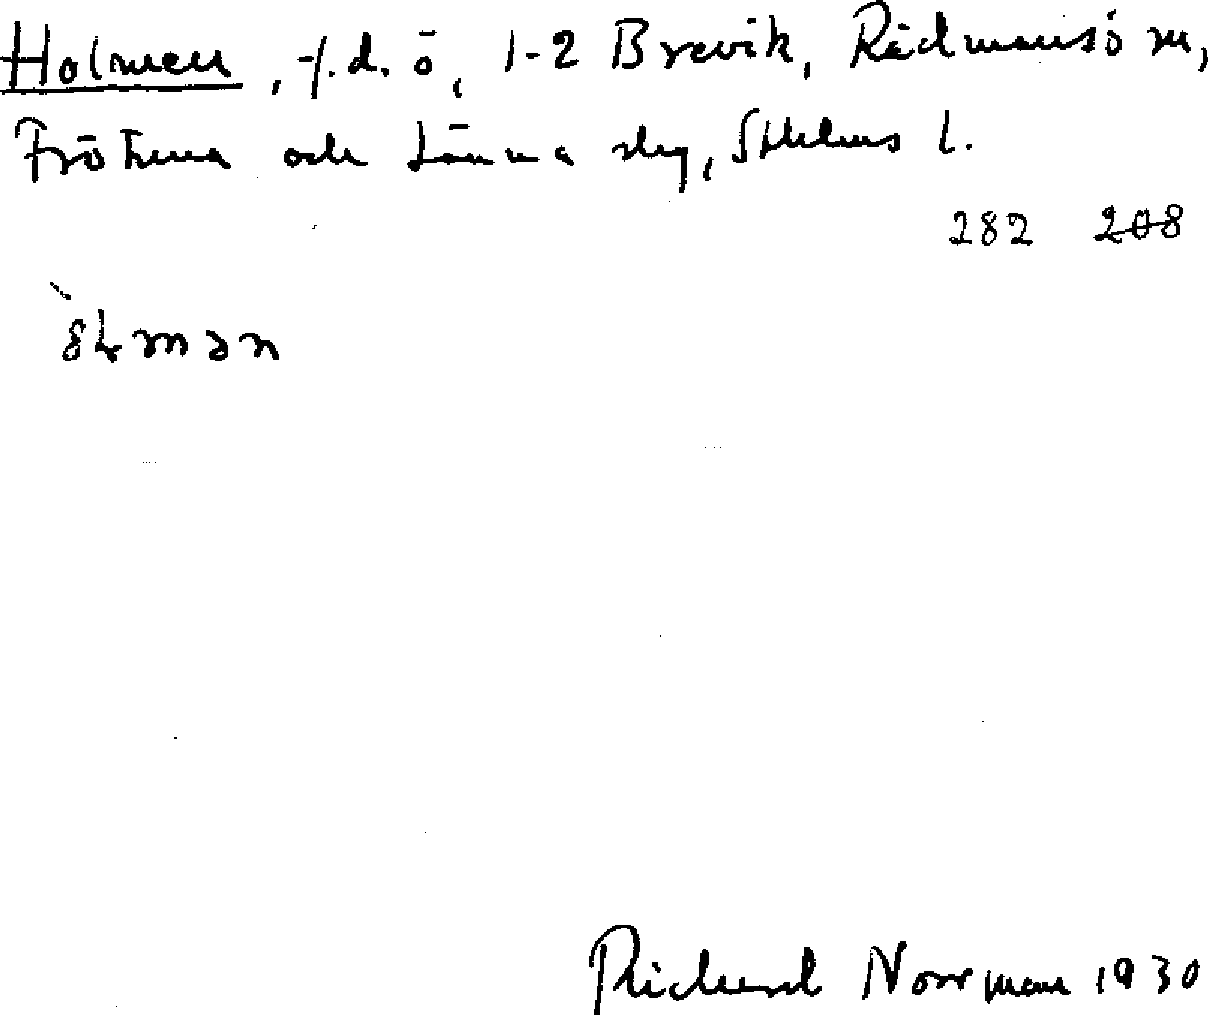 Holmen, f.d. ö, 1-2 Brevik, Rådmansö sn,
Frötuna och Länna slg, Sthlms l.
282 208
Richard Norrman 1930